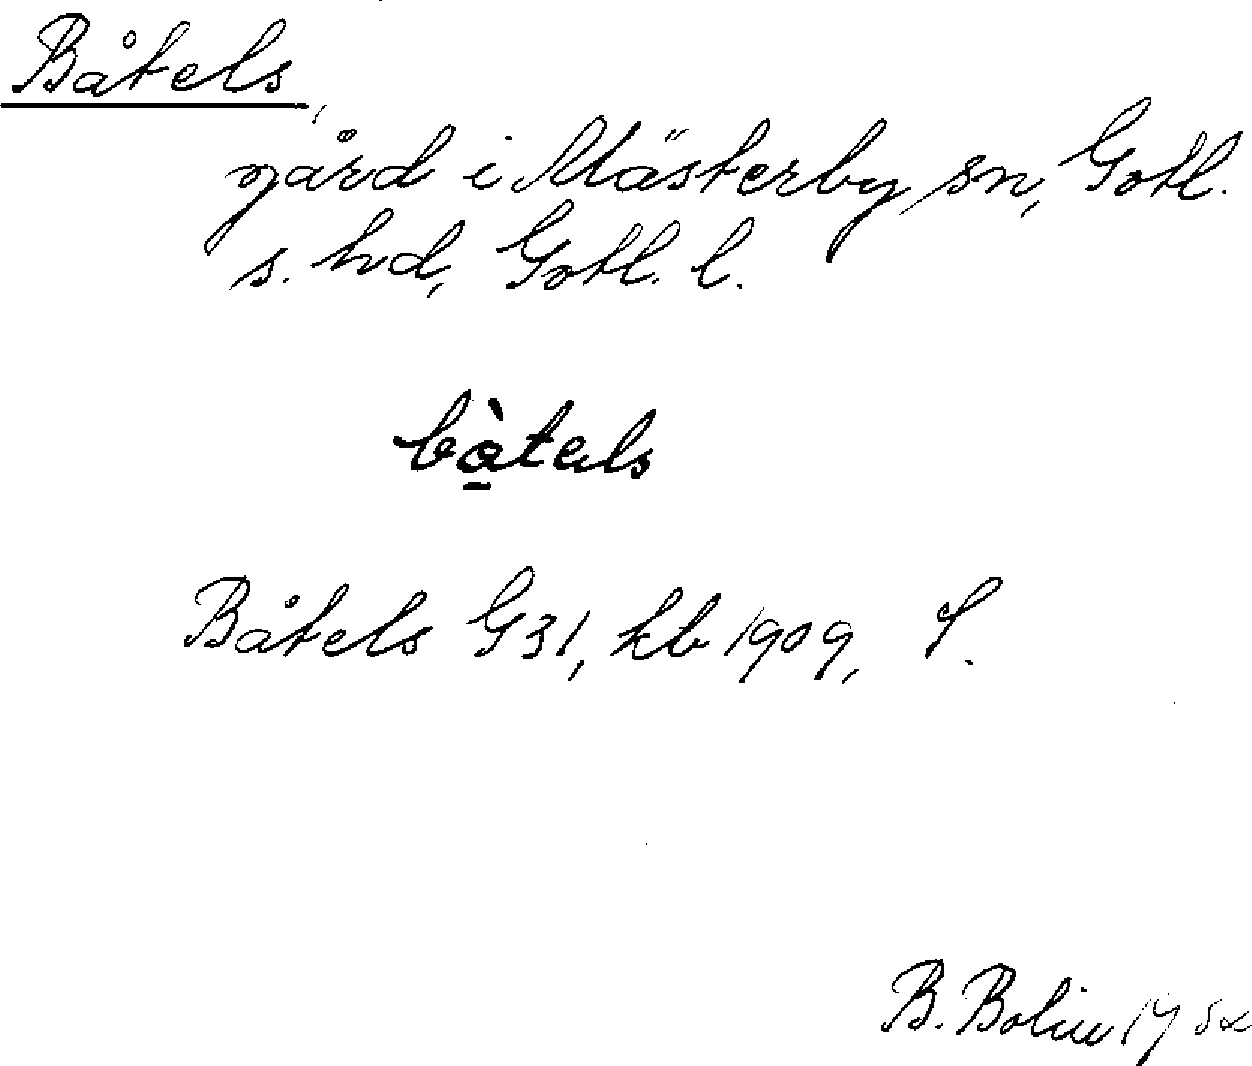 Båtels,
gård i Mästerby sn, Gotl.
s. hd, Gotl. l.
bà̱tals
Båtels G31, kb 1909, S.
B. Bolin 1952